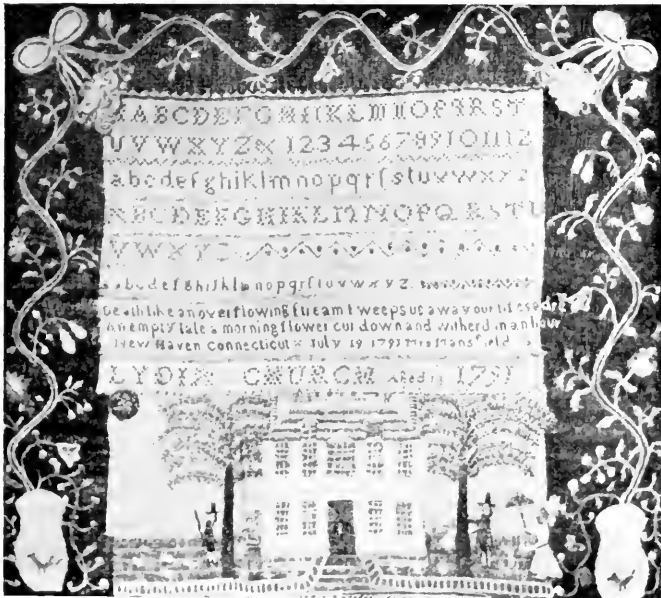 ABCDEFGHIKLMNOPQRST
UVWXYZ& 123456789101112
abcdefghiklmnopqrſstuvwxyz
ABCDEFGHIKLMNOPQRSTU
VWXYZ
abcdefghiklmnopqrſtuvwxyz
Death like an overflowing ſtream sweeps us away our life's a dream
An empty tale a morning flower cut down and witherd in an hour
New Haven Connecticut July 19 1791 Mansfield
LYDIA CHURCH Aged 13 1791